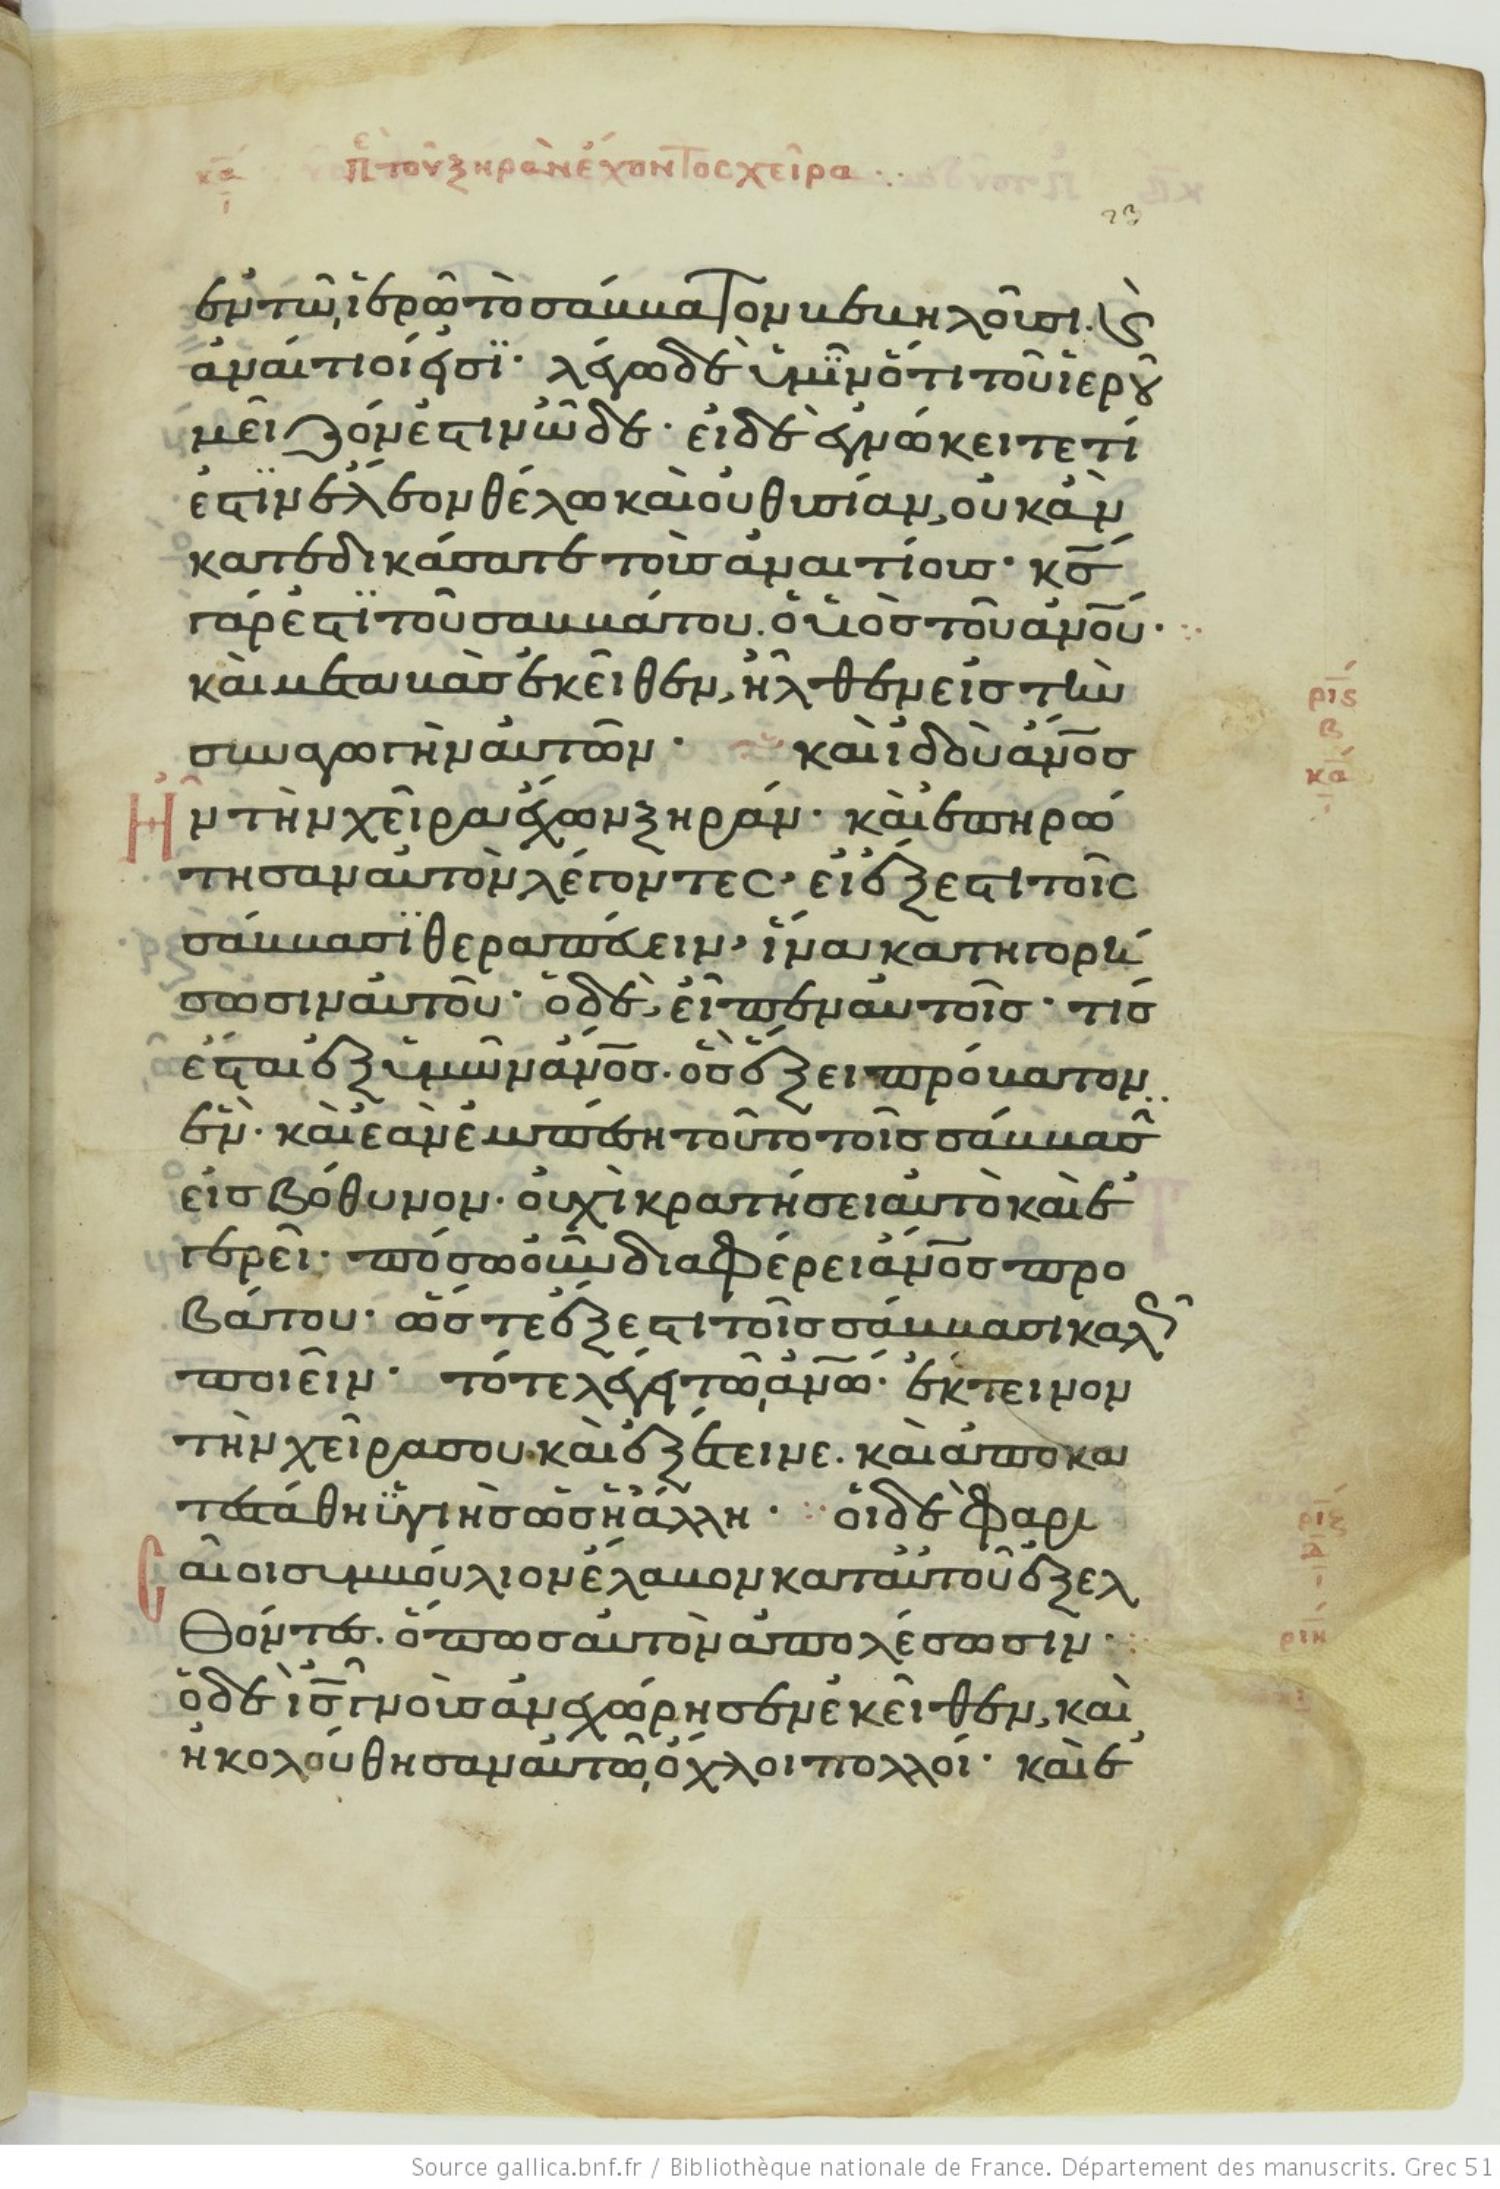 κα περὶ τοῦ ξηρὰν ἔχοντος χεῖρα
23
ἐν τῶ ἱερῶ τὸ σάββατον βεβηλοῦσι. καὶ
ἀναίτιοί εἰσϊ· λέγω δὲ ὑμῖν ὅτι τοῦ ἱεροῦ
μεῖζόν ἐστιν ὧδε· εἰ δὲ ἐγνώκειτε τί
ἐστϊν ἔλεον θέλω καὶ οὐ θυσίαν, οὐκ ἂν
κατεδικάσατε τοὺς ἀναιτίους· κς
γάρ ἐστϊ τοῦ σαββάτου. ὁ υἱὸς τοῦ ἀνου·
καὶ μεταβὰς ἐκεῖθεν, ἦλθεν εἰς τὴν
συναγωγὴν αὐτῶν· καὶ ἰδοὺ ἀνος
Ἦν τὴν χεῖρα ἔχων ξηράν· καὶ ἐπηρώ
τησαν αὐτὸν λέγοντες· εἰ ἔξεστι τοῖς
σάββασϊ θεραπεύειν· ἵνα κατηγορή
σωσιν αὐτοῦ· ὁ δὲ, εἶπεν αὐτοῖς· τίς
ἔσται ἐξ ὑμῶν ἀνος. ὃς ἕξει πρόβατον
ἕν· καὶ ἐὰν ἐμπέση τοῦτο τοῖς σάββασι
εἰς βόθυνον· οὐχὶ κρατήσει αὐτὸ καὶ ἐ
γερεῖ· πόσω οὖν διαφέρει ἀνος προ
βάτου· ὥστε ἔξεστι τοῖς σάββασι καλῶς
ποιεῖν· τότε λέγει τῶ ἀνω· ἔκτεινον
τὴν χεῖρα σου καὶ ἐξέτεινε. καὶ ἀποκα
τεστάθη ὑγιὴς ὡς ἡ ἄλλη· οἱ δὲ Φαρι
σαῖοι συμβούλιον ἔλαβον κατ αὐτοῦ ἐξελ
θόντες. ὅπως αὐτὸν ἀπολέσωσιν·
ὁ δὲ ις γνοὺς ἀνεχώρησεν ἐκεῖθεν, καὶ
ἠκολούθησαν αὐτῶ, ὄχλοι πολλοί· καὶ ἐ
ρις
β
κα
ριζ
ριη
Source gallica.bnf.fr / Bibliothèque nationale de France. Département des manuscrits. Grec 51